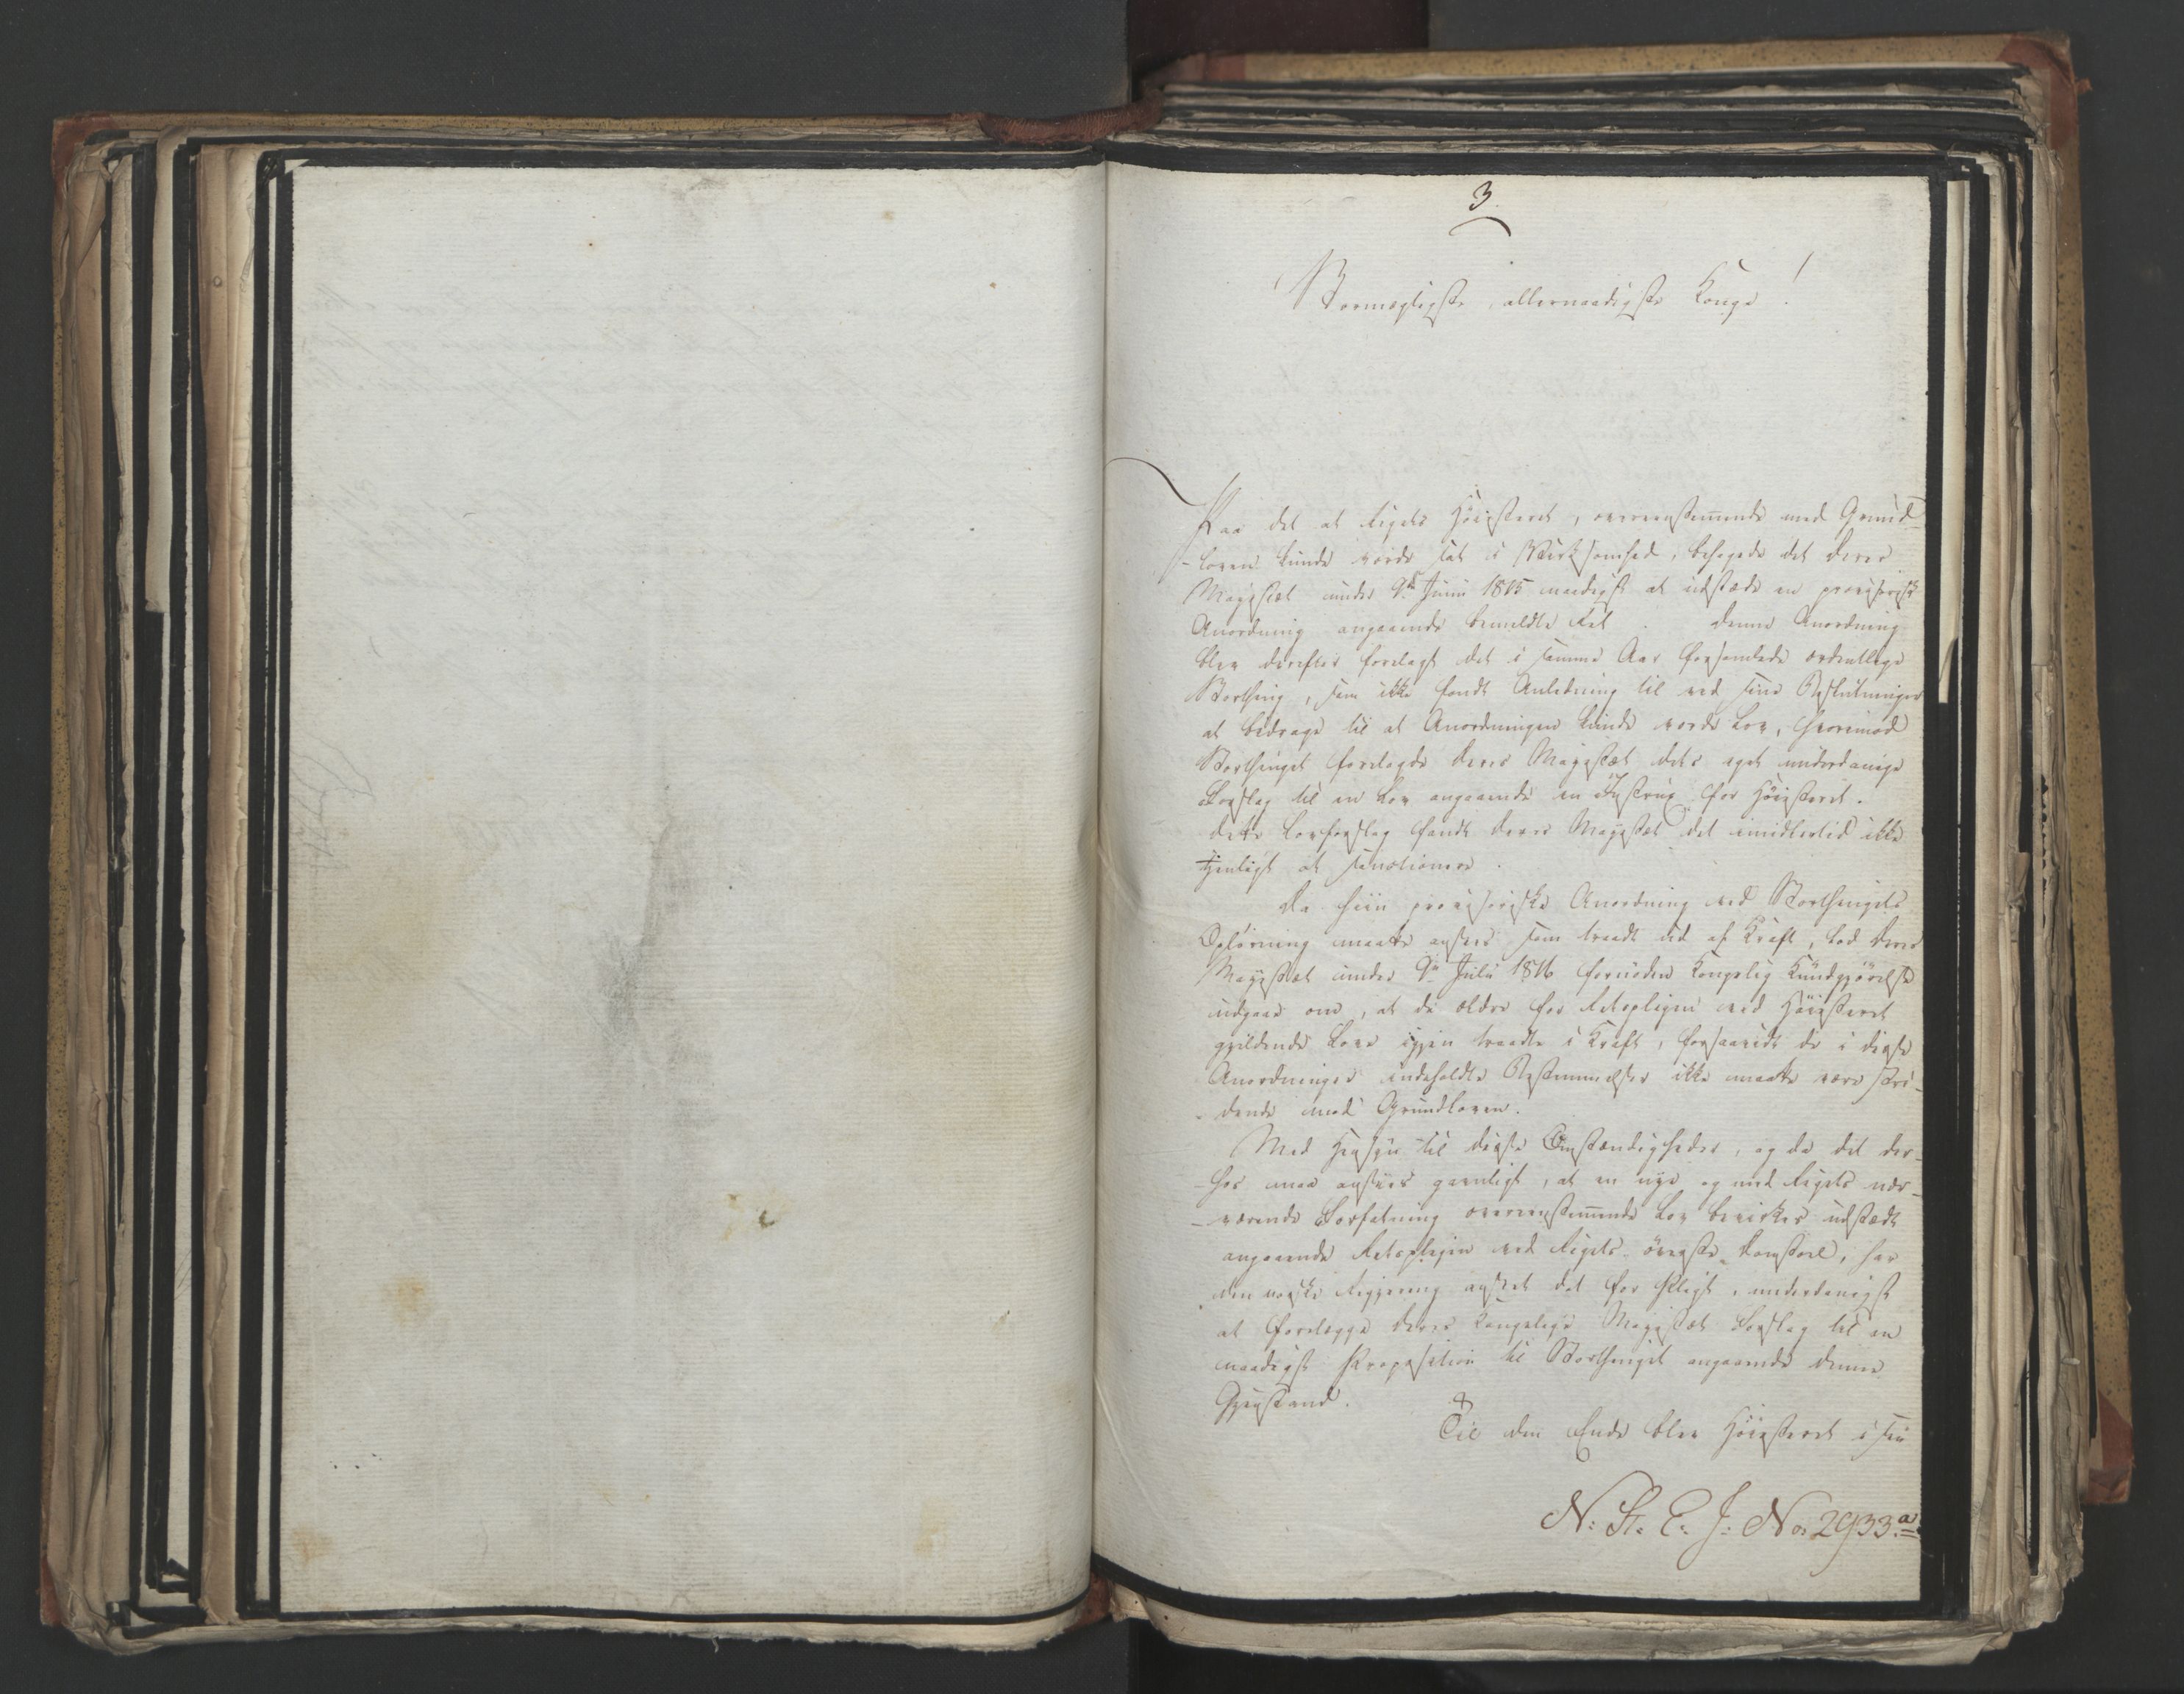 3
Stormægtigste, allernaadigste Konge!
Paa det at Rigets Høiesteret, overeenstemmende med Grund-
-loven kunde vorde sat i Virksomhed, behagede det Deres
Majestæt under 9de Junii 1815 naadigst at udstæde en provisorisk
Anordning angaaende bemeldte Ret. Denne Anordning
blev derefter forelagt det i samme Aar forsamlede ordentlige
Storthing, som ikke fandt Anledning til ved sine Beslutninger
at bidrage til at Anordningen kunde vorde Lov, hvorimod
Storthinget forelagde Deres Majestæt dets eget underdanige
Forslag til en Lov angaaende en Instrux for Høiesteret.
Dette Lovforslag fandt Deres Majestæt det imidlertid ikke
tjenligt at sanctionere.
Da hiin provisoriske Anordning ved Storthingets
Opløsning maatte ansees som traadt ud af Kraft, lod Deres
Majestæt under 9de Julii 1816 foruden Kongelig Kundgjörelse
udgaae om, at de ældre for Retspleien ved Høiesteret
gjeldende Love igjen traadte i Kraft, forsaavidt de i disse
Anordninger indeholdte Bestemmelser ikke maatte være stri-
-dende mod Grundloven.
Med Hensyn til disse Omstændigheder, og da det der-
-hos maa ansees gavnligt, at en nye og med Rigets nær-
-værende Forfatning overeenstemmende Lov bevirkes udstædt
angaaende Retspleien ved Rigets øverste Domstoel, har
den norske Regjering anseet det for Pligt, underdanigst
at forelægge Deres Kongelige Majestæt Forslag til en
naadigst Proposition til Storthinget angaaende denne
Gjenstand.
Til den Ende blev Høiesteret i sin
N: St. E. J: No: 2933.a